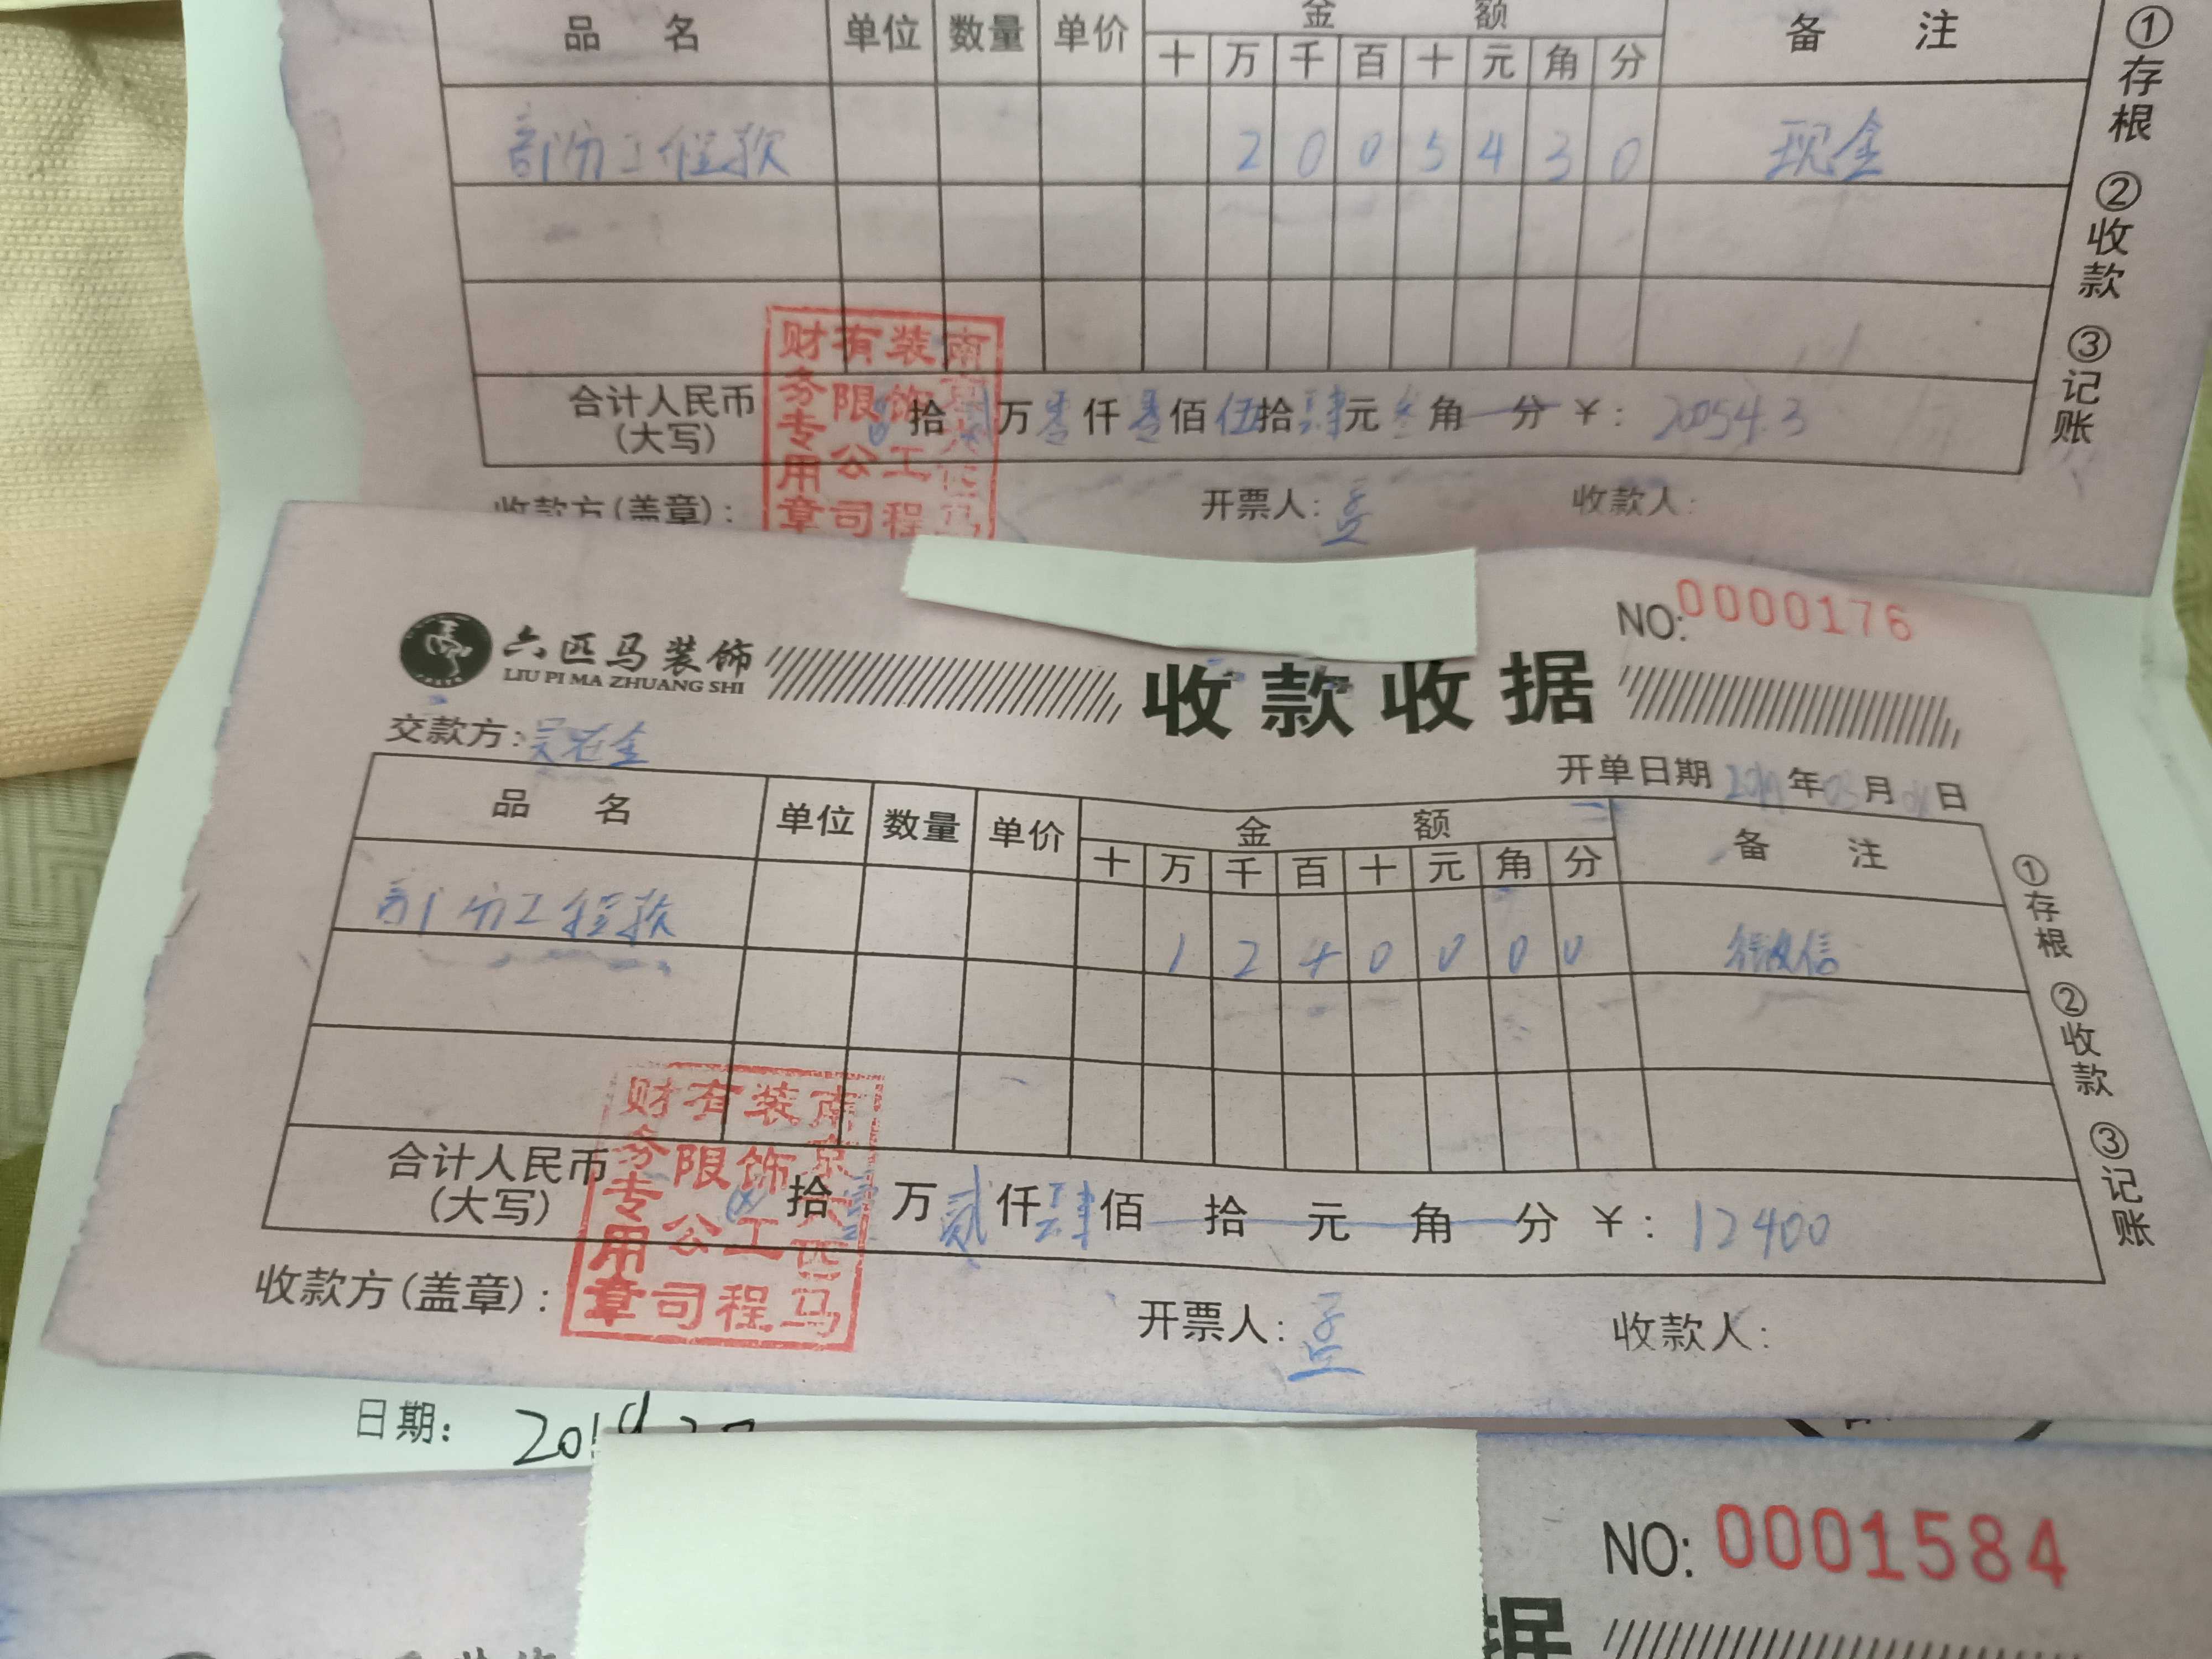 品 名 单位 数量 单价 金 额 备 注
十 万 千 百 十 元 角 分
部份工程款 2 0 0 5 4 3 0 现金
合计人民币 拾 贰 万 零 仟 零 佰 伍 拾 肆 元 叁 角 分 ¥: 20054.3
(大写)
收款方(盖章): 开票人: 收款人:
南京六匹马装饰工程有限公司财务专用章
①存根 ②收款 ③记账
六匹马装饰
LIU PI MA ZHUANG SHI
收款收据
NO: 0000176
交款方:
开单日期 2019 年 03 月 日
品 名 单位 数量 单价 金 额 备 注
十 万 千 百 十 元 角 分
部份工程款 1 2 4 0 0 0 0 微信
合计人民币 ⊗ 拾 壹 万 贰 仟 肆 佰 拾 元 角 分 ¥: 12400
(大写)
收款方(盖章): 开票人: 收款人:
南京六匹马装饰工程有限公司财务专用章
①存根 ②收款 ③记账
日期: 2019
NO: 0001584
据